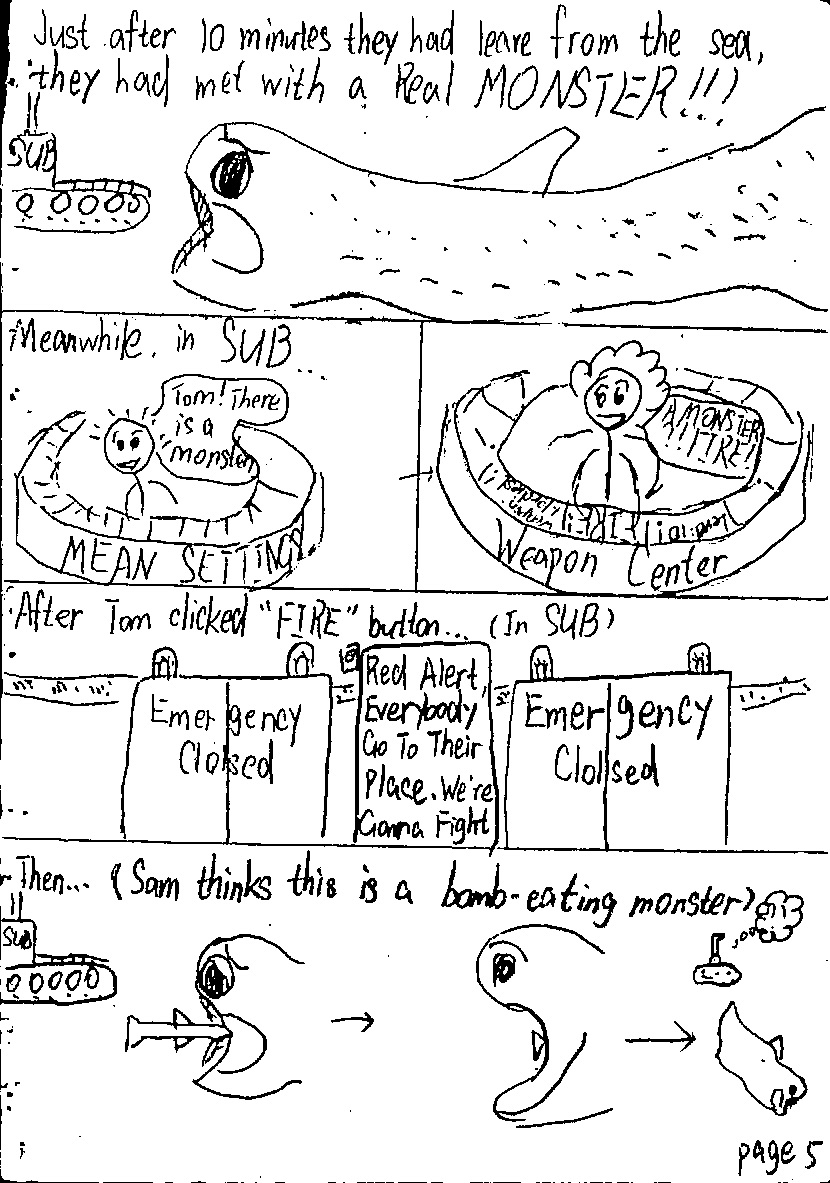 Just after 10 minutes they had leave from the sea,
they had met with a Real MONSTER!!!
SUB
Meanwhile, in SUB...
Tom! There
is a
monster
MEAN SETTINGS
A MONSTER
!!! FIRE!
FIRE!
Weapon Center
After Tom clicked "FIRE" button... (In SUB)
Emergency
Clolsed
Red Alert,
Everybody
Go To Their
Place. We're
Gonna Fight
Emergency
Clolsed
Then... (Sam thinks this is a bomb-eating monster)
SUB
page 5